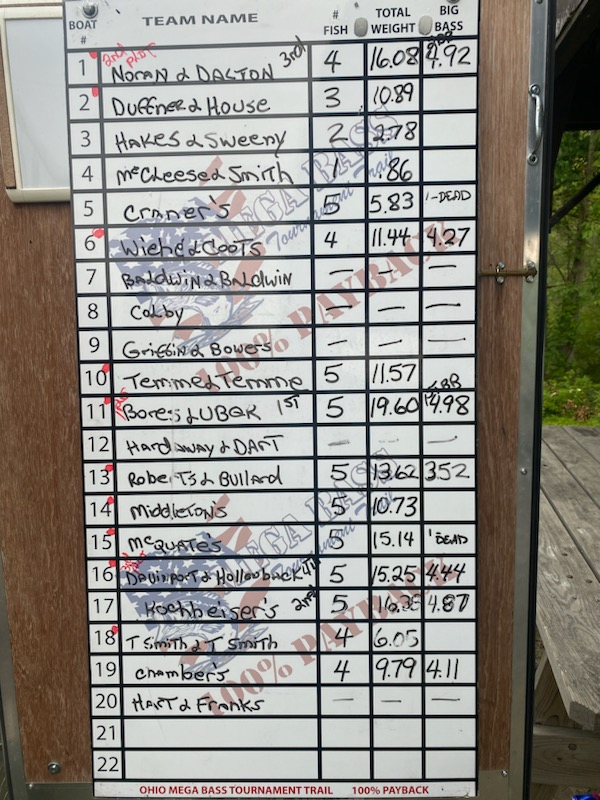 BOAT # TEAM NAME # FISH TOTAL WEIGHT BIG BASS
1 2nd plot Noran & DALTON 3rd 4 16.08 2nd BB 4.92
2 Duffnee & House 3 10.89
3 HAKES & Sweeny 2 2.78
4 McCleese & Smith 1 .86
5 Craner's 5 5.83 1-DEAD
6 Wiehe & Coots 4 11.44 4.27
7 BALDWIN & BALDWIN — — —
8 Colby — — —
9 Griffin & Bowers — — —
10 Temme & Temme 5 11.57
11 Bores & UBER 1ST 5 19.60 1st BB 4.98
12 Hardaway & DART — — —
13 Roberts & Bullard 5 13.62 3.52
14 Middleton's 5 10.73
15 McQUATE's 5 15.14 1 DEAD
16 Davinport & Hollowback 4TH 5 15.25 4.44
17 Kochheiser's 2nd 5 16.38 4.87
18 T Smith & T Smith 4 6.05
19 Chamber's 4 9.79 4.11
20 HART & Franks — — —
21
22
MEGA BASS
Tournament Trail
100% PAYBACK
MEGA BASS
100% PAYBACK
OHIO MEGA BASS TOURNAMENT TRAIL 100% PAYBACK